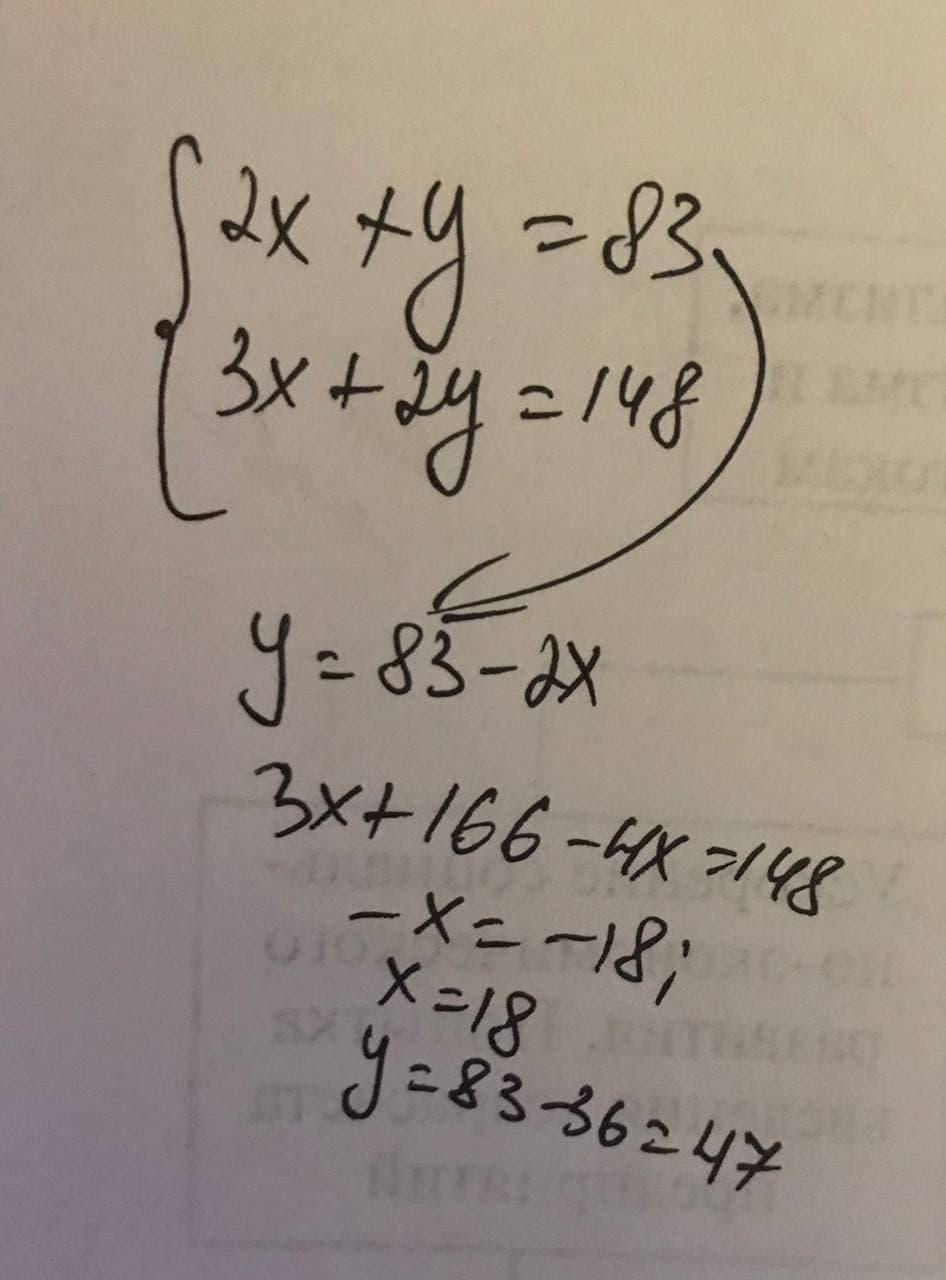 2x + y = 83
3x + 2y = 148
y = 83 - 2x
3x + 166 - 4x = 148
- x = -18;
x = 18
y = 83 - 36 = 47